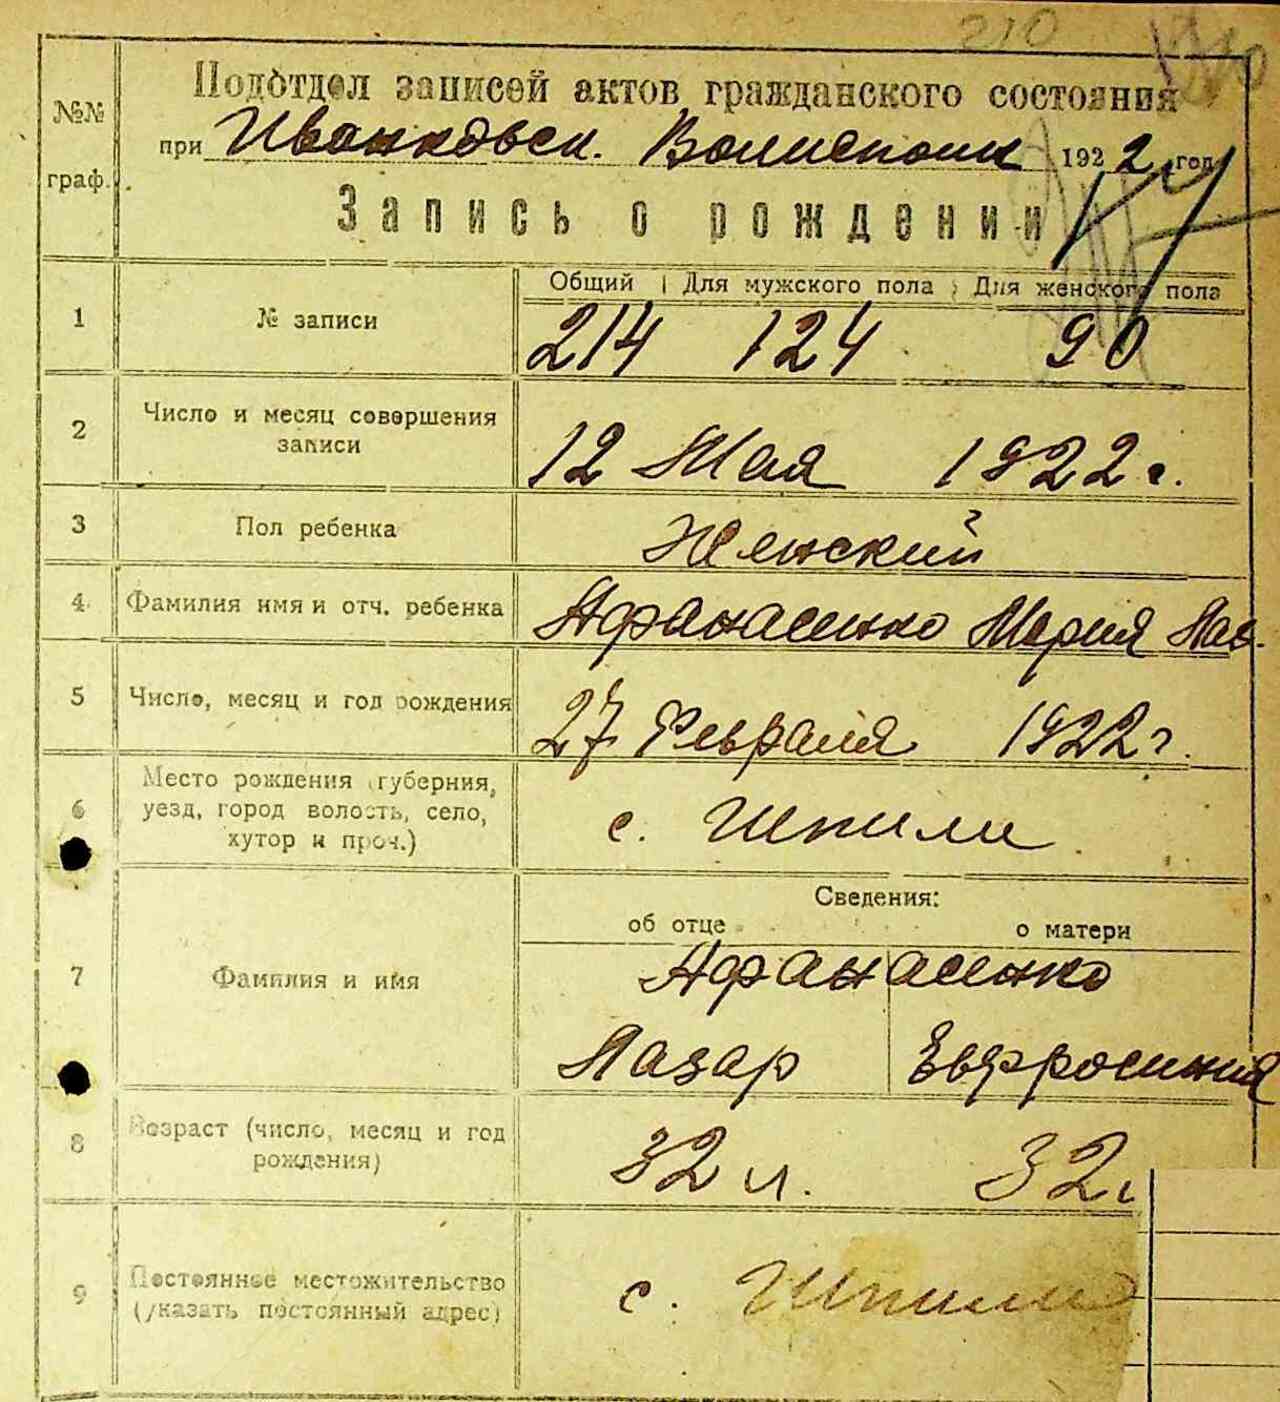 210
№№ граф.
Подотдел записей актов гражданского состояния
при Иванковск. Волисполк 1922 год
Запись о рождении
Общий Для мужского пола Для женского пола
1 № записи 214 124 90
2 Число и месяц совершения
записи 12 Мая 1922 г.
3 Пол ребенка Женский
4 Фамилия имя и отч. ребенка Афанасенко Мария Лаз.
5 Число, месяц и год рождения 27 Февраля 1922 г.
6 Место рождения (губерния,
уезд, город волость, село,
хутор и проч.) с. Шпили
Сведения:
об отце о матери
7 Фамилия и имя Афанасенко
Лазар Евфросиния
8 Возраст (число, месяц и год
рождения) 32 л. 32 л
9 Постоянное местожительство
(указать постоянный адрес) с. Шпили